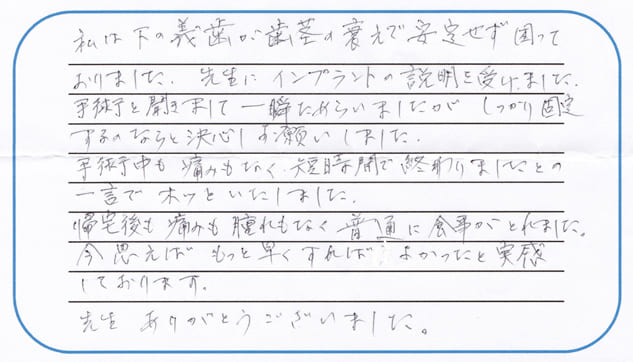 私は下の義歯が歯茎の衰えで安定せず困って
おりました。先生にインプラントの説明を受けました。
手術と聞きまして一瞬ためらいましたが しっかり固定
するのならと決心しお願いしました。
手術中も痛みもなく、短時間で終わりましたとの
一言でホッといたしました。
帰宅後も痛みも腫れもなく普通に食事がとれました。
今思えばもっと早くすればよかったと実感
しております。
先生ありがとうございました。